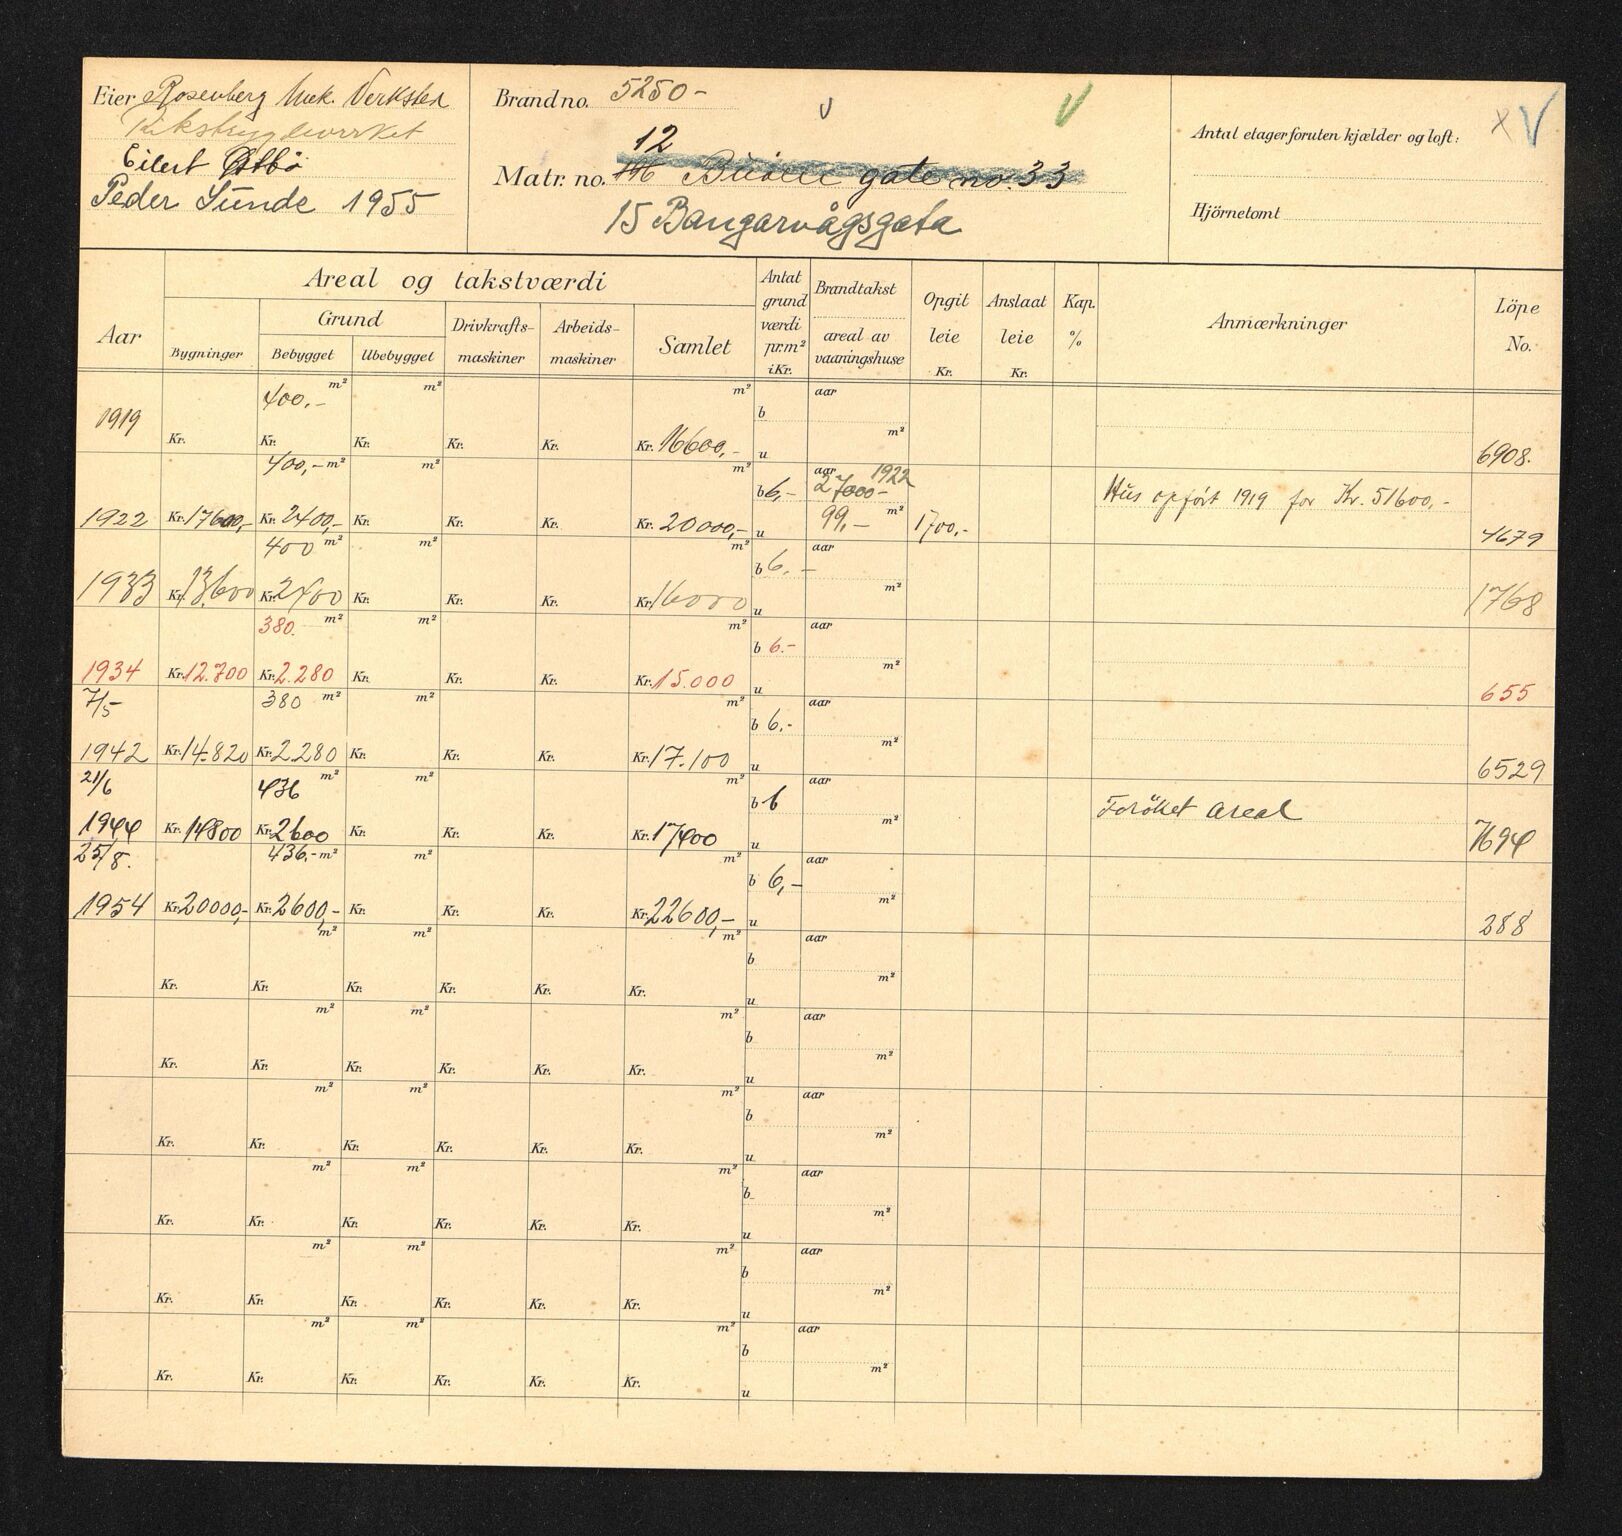 Eier Rosenberg Mek. Verksted
Eilert Østbø
Peder Sunde 1955
Brand no. 5250-
V
V
12
Matr. no. gate no. 33
15 Bangarvågsgata
Antal etager foruten kjælder og loft:
x V
Hjörnetomt
Aar
Areal og takstværdi
Bygninger
Grund
Bebygget
Ubebygget
Drivkrafts-maskiner
Arbeids-maskiner
Samlet
Antat grund værdi pr. m² i Kr.
Brandtakst
areal av vaaningshuse
Opgit leie Kr.
Anslaat leie Kr.
Kap. %
Anmærkninger
Löpe No.
400,- m² m² m² aar
1919 Kr. Kr. Kr. Kr. Kr. Kr. 16600,- b u m² 6908.
400,- m² m² m² aar 1922
b 6,- 27000- Hus opført 1919 for Kr. 51600,-
1922 Kr. 17600,- Kr. 2400,- Kr. Kr. Kr. Kr. 20000,- u 99,- m² 1700,- 4679
400 m² m² m² aar
b 6,-
1933 Kr. 13600 Kr. 2400 Kr. Kr. Kr. Kr. 16000 u m² 1768
380. m² m² m² aar
b 6.-
1934 Kr. 12.700 Kr. 2.280 Kr. Kr. Kr. Kr. 15.000 u m² 655
7/5 380 m² m² m² aar
b 6,-
1942 Kr. 14.820 Kr. 2.280 Kr. Kr. Kr. Kr. 17.100 u m² 6529
21/6 436 m² m² m² aar
b 6 Forøket areal
1944 Kr. 14800 Kr. 2600 Kr. Kr. Kr. Kr. 17400 u m² 7694
25/8. 436,- m² m² m² aar
b 6,-
1954 Kr. 20000,- Kr. 2600,- Kr. Kr. Kr. Kr. 22600,- u m² 288
m² m² m² aar
b
Kr. Kr. Kr. Kr. Kr. Kr. u m²
m² m² m² aar
b
Kr. Kr. Kr. Kr. Kr. Kr. u m²
m² m² m² aar
b
Kr. Kr. Kr. Kr. Kr. Kr. u m²
m² m² m² aar
b
Kr. Kr. Kr. Kr. Kr. Kr. u m²
m² m² m² aar
b
Kr. Kr. Kr. Kr. Kr. Kr. u m²
m² m² m² aar
b
Kr. Kr. Kr. Kr. Kr. Kr. u m²